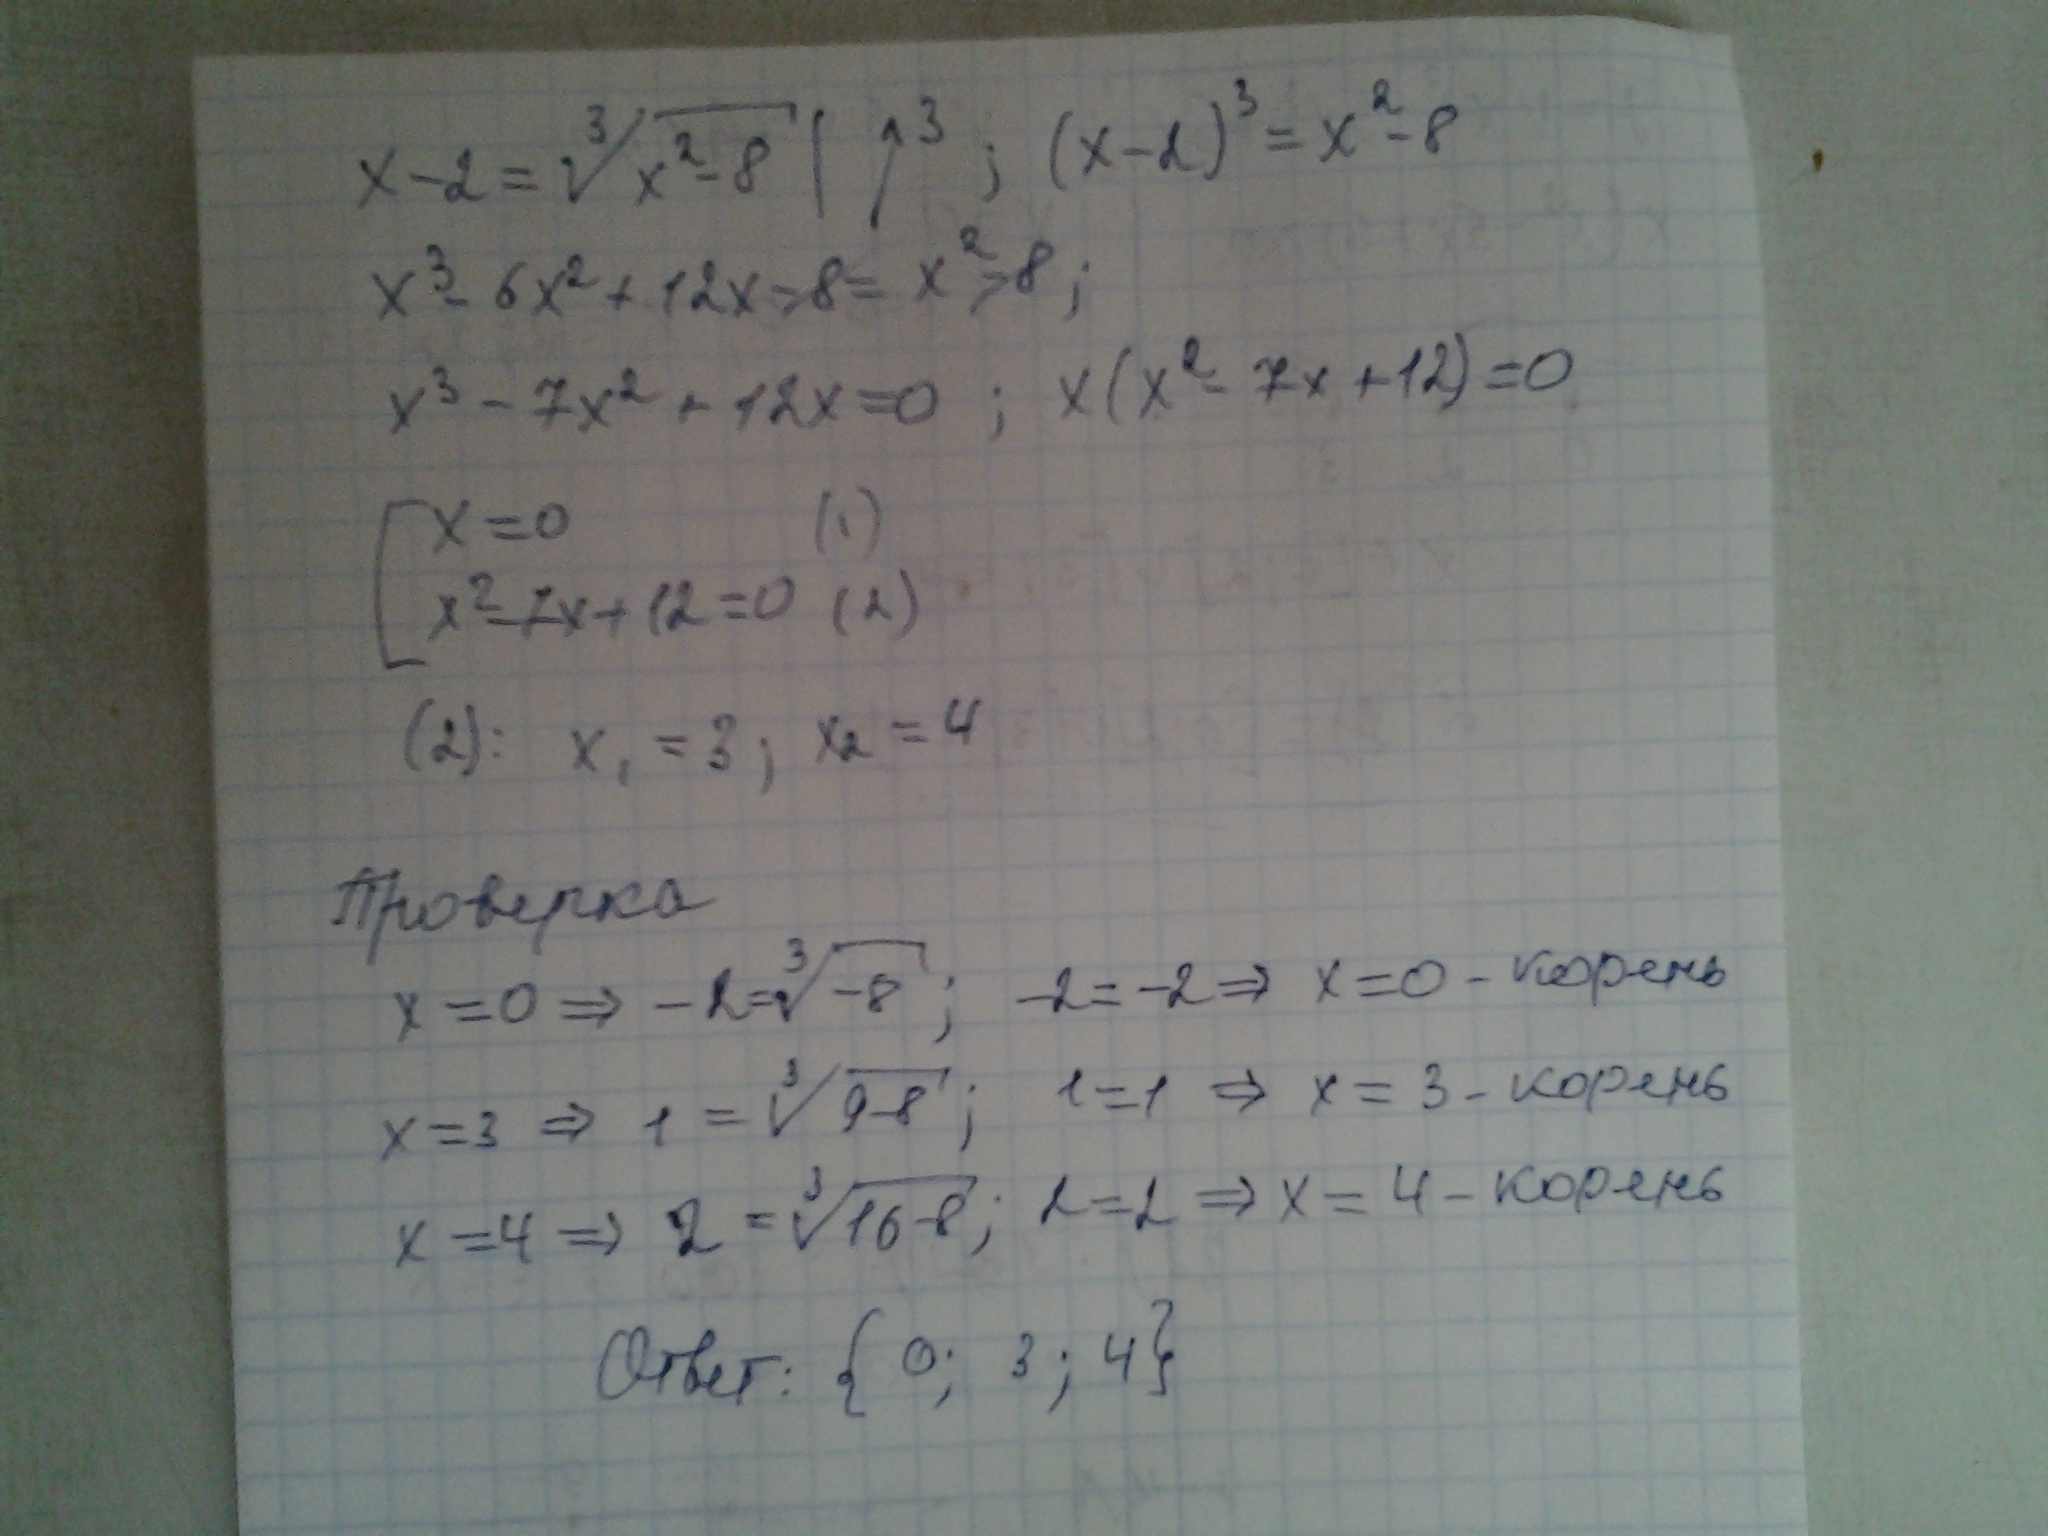 x-2=∛(x²-8) | ↑3 ; (x-2)³=x²-8
x³-6x²+12x-8=x²-8;
x³-7x²+12x=0 ; x(x²-7x+12)=0
[x=0 (1)
x²-7x+12=0 (2)
(2): x₁=3; x₂=4
Проверка
x=0⇒-2=∛-8; -2=-2⇒ x=0-корень
x=3 ⇒ 1=∛9-8; 1=1 ⇒ x=3-корень
x=4⇒ 2=∛16-8; 2=2 ⇒ x=4-корень
Ответ: {0; 3; 4}